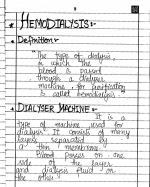 HEMODIALYSIS :-
Definition :-
The type of dialysis
in which the
blood is passed
through a dialyser
machine, for purification
is called hemodialysis.
DIALYSER MACHINE :-
It is a
type of machine used for
dialysis. It consists of many
layers separated by
a thin membrane.
Blood passes on one
side of the layer
and dialysis fluid on
the other.